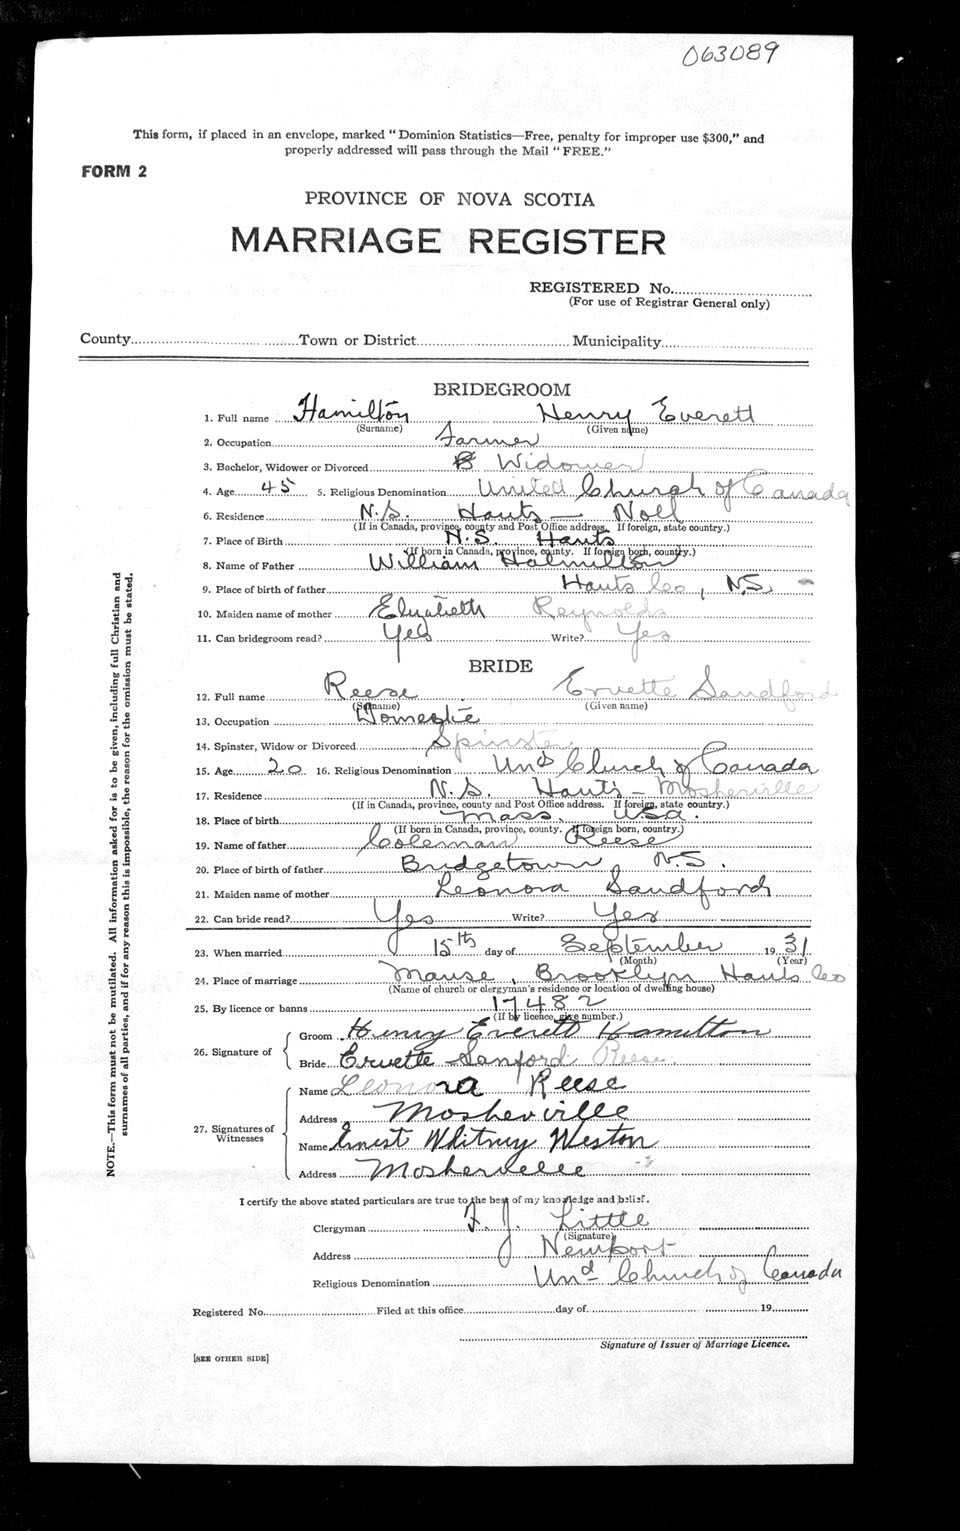 063089
This form, if placed in an envelope, marked "Dominion Statistics—Free, penalty for improper use $300," and
properly addressed will pass through the Mail "FREE."
FORM 2
PROVINCE OF NOVA SCOTIA
MARRIAGE REGISTER
REGISTERED No.
(For use of Registrar General only)
County Town or District Municipality
BRIDEGROOM
1. Full name Hamilton Henry Everett
(Surname) (Given name)
2. Occupation Farmer
3. Bachelor, Widower or Divorced B Widower
4. Age 45 5. Religious Denomination United Church of Canada
6. Residence N.S. Hants — Noel
(If in Canada, province, county and Post Office address. If foreign, state country.)
7. Place of Birth N.S. Hants
(If born in Canada, province, county. If foreign born, country.)
8. Name of Father William Halmilton
9. Place of birth of father Hants Co, N.S.
10. Maiden name of mother Elizabeth Reynolds
11. Can bridegroom read? Yes Write? Yes
BRIDE
12. Full name Reese Ervette Sandford
(Surname) (Given name)
13. Occupation Domestic
14. Spinster, Widow or Divorced Spinster
15. Age 20 16. Religious Denomination Und Church of Canada
17. Residence N.S. Hants – Mosherville
(If in Canada, province, county and Post Office address. If foreign, state country.)
18. Place of birth Mass. USA.
(If born in Canada, province, county. If foreign born, country.)
19. Name of father Coleman Reese
20. Place of birth of father Bridgetown N.S.
21. Maiden name of mother Leonora Sandford
22. Can bride read? Yes Write? Yes
23. When married 15th day of September 1931
(Month) (Year)
24. Place of marriage Manse, Brooklyn Hants Co
(Name of church or clergyman's residence or location of dwelling house)
25. By licence or banns 17482
(If by licence, give number.)
26. Signature of Groom Henry Everett Hamilton
Bride Ervette Sanford Reese
27. Signatures of Witnesses Name Leonora Reese
Address Mosherville
Name Ernest Whitney Weston
Address Mosherville
I certify the above stated particulars are true to the best of my knowledge and belief.
Clergyman F. J. Little
(Signature)
Address Newport
Religious Denomination Und Church of Canada
Registered No. Filed at this office day of 19
Signature of Issuer of Marriage Licence.
[SEE OTHER SIDE]
NOTE.—This form must not be mutilated. All information asked for is to be given, including full Christian and
surnames of all parties, and if for any reason this is impossible, the reason for the omission must be stated.